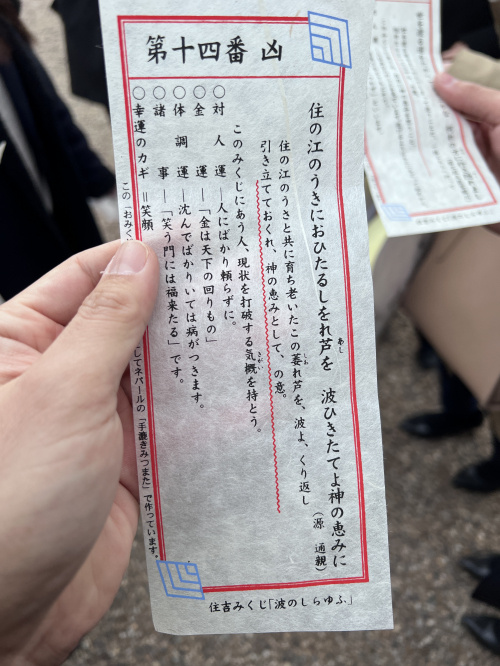 第十四番 凶
住の江のうきにおひたるしをれ芦を 波ひきたてよ神の恵みに
あし
(源 通親)
住の江のうさと共に育ち老いたこの萎れ芦を、波よ、くり返し
しお
引き立てておくれ、神の恵みとして、の意。
このみくじにあう人、現状を打破する気概を持とう。
きがい
○対人運―人にばかり頼らずに。
○金 運―「金は天下の回りもの」
○体調運―沈んでばかりいては病がつきます。
○諸 事―「笑う門には福来たる」です。
○幸運のカギ=笑顔
この「おみく してネパールの「手漉きみつまた」で作っています。
住吉みくじ「波のしらゆふ」